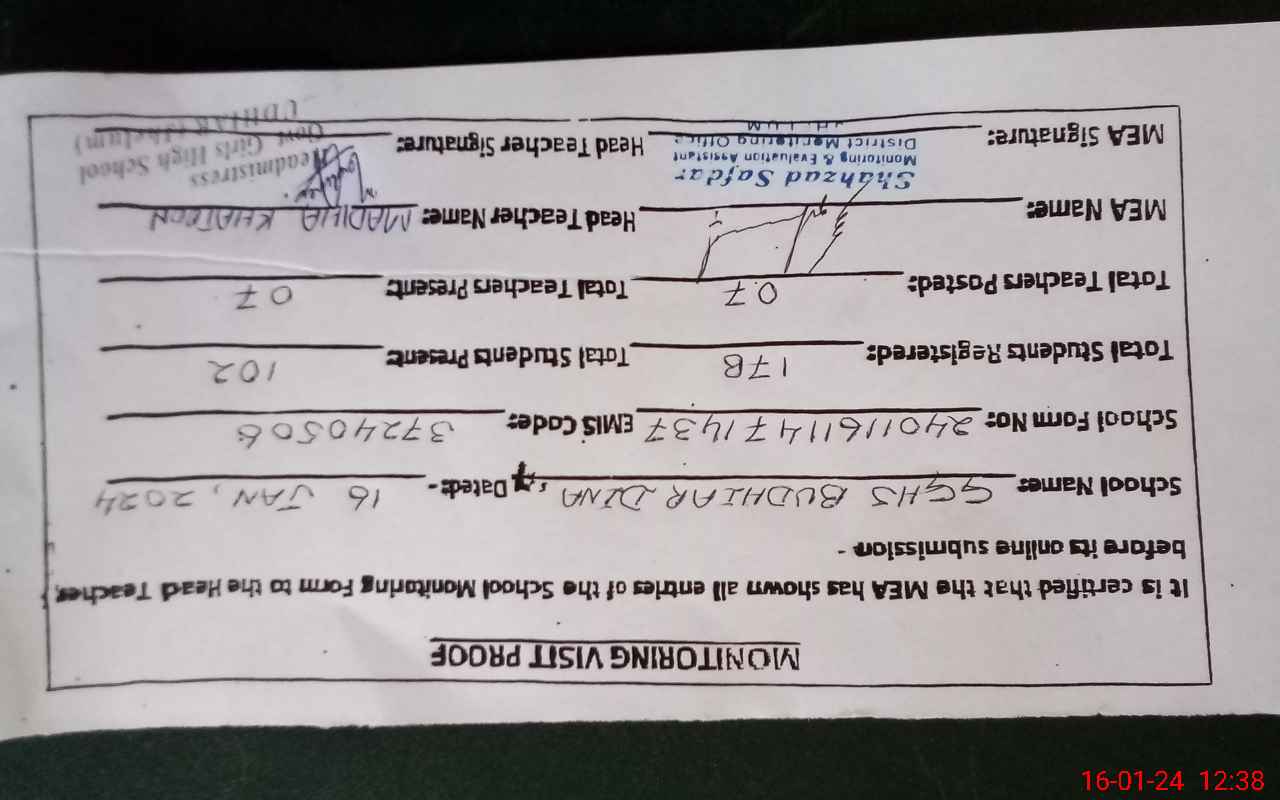 MONITORING VISIT PROOF
It is certified that the MEA has shown all entries of the School Monitoring Form to the Head Teacher
before its online submission -
School Name: GGHS BUDHIAR DINA, Dated:- 16 JAN, 2024
School Form No: 240116111471437 EMIS Code: 37240506
Total Students Registered: 178 Total Students Present: 102
Total Teachers Posted: 07 Total Teachers Present: 07
MEA Name: Head Teacher Name: MADIHA KHATOON
Shahzad Safdar
Monitoring & Evaluation Assistant
District Monitoring Office
Headmistress
Govt Girls High School
(Jhelum)
MEA Signature: Head Teacher Signature:
16-01-24 12:38